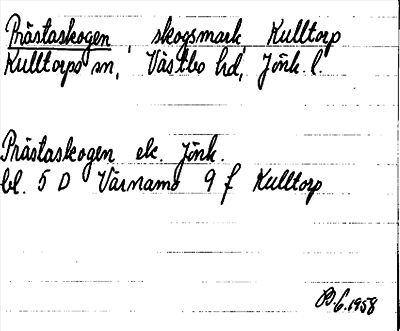 Prästaskogen, skogsmark, Kulltorp
Kulltorps sn, Västbo hd, Jönk. l.
Prästaskogen ek. Jönk.
bl. 5 D Värnamo 9 f Kulltorp
6.1958